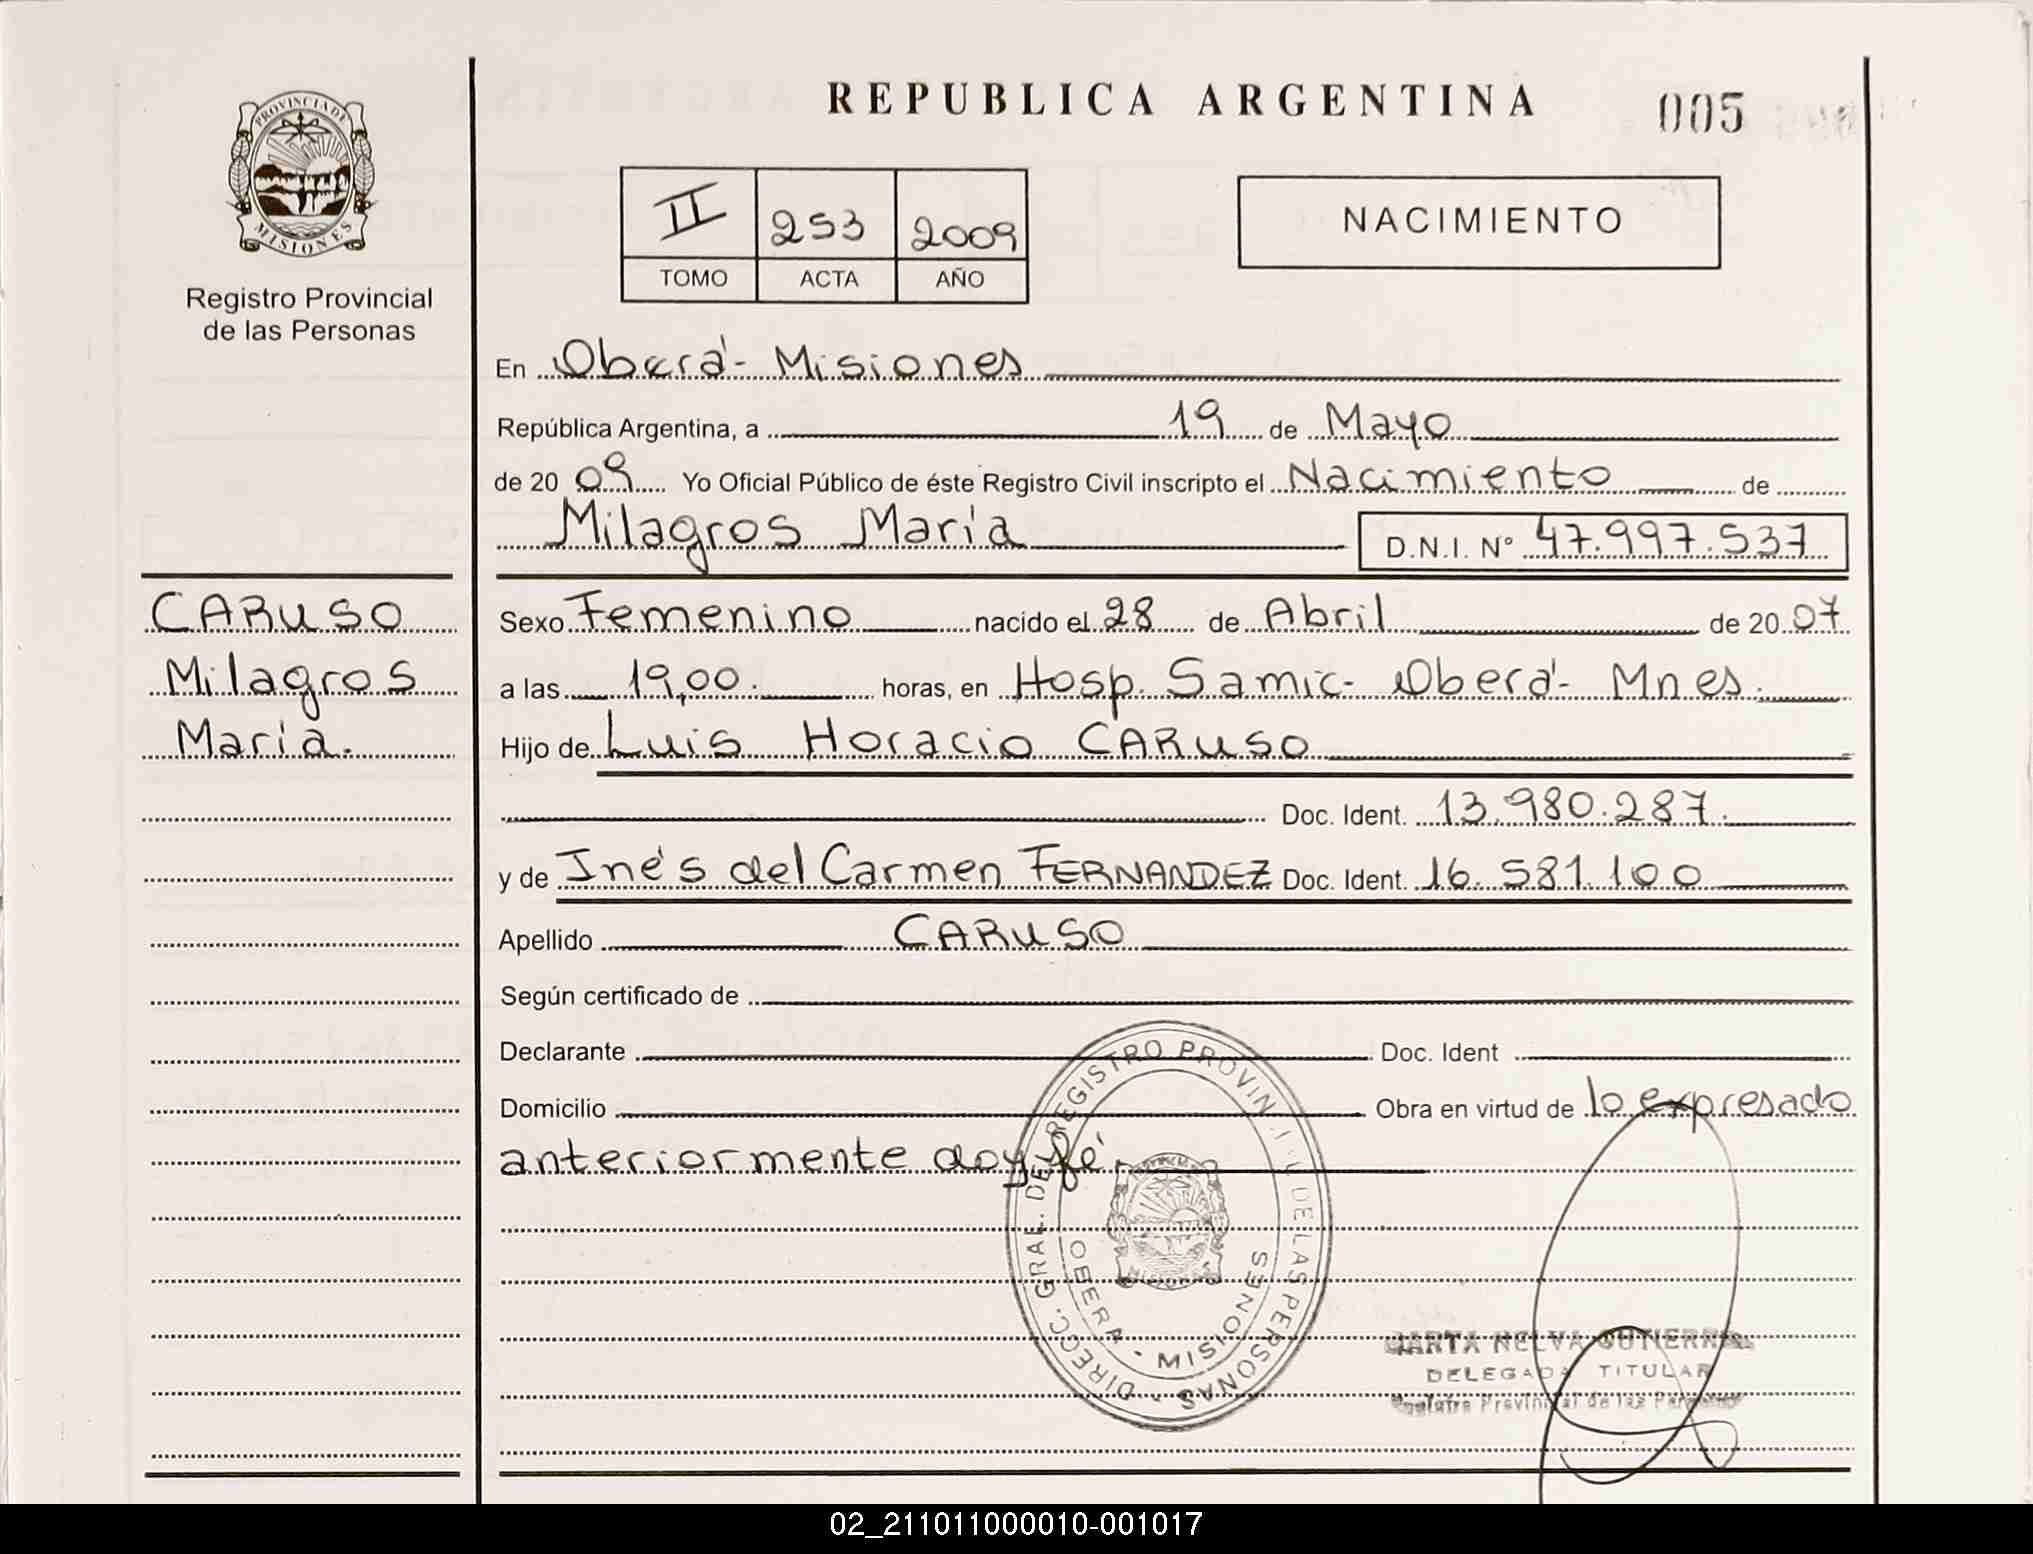 PROVINCIA DE
MISIONES
Registro Provincial
de las Personas
REPUBLICA ARGENTINA
005
II 253 2009
TOMO ACTA AÑO
NACIMIENTO
En Oberá - Misiones
República Argentina, a 19 de Mayo
de 20 09 Yo Oficial Público de éste Registro Civil inscripto el Nacimiento de
Milagros María D.N.I. N° 47.997.537
CARUSO
Milagros
María.
Sexo Femenino nacido el 28 de Abril de 20 07
a las 19,00. horas, en Hosp. Samic - Oberá - Mnes.
Hijo de Luis Horacio CARUSO
Doc. Ident. 13.980.287.
y de Inés del Carmen FERNANDEZ Doc. Ident. 16.581.100
Apellido CARUSO
Según certificado de
Declarante Doc. Ident
Domicilio Obra en virtud de lo expresado
anteriormente doy fé.
DIRECC. GRAL. DEL REGISTRO PROVINCIAL DE LAS PERSONAS
OBERA - MISIONES
MARTA NELVA GUTIERREZ
DELEGADA TITULAR
Registro Provincial de las Personas
02_211011000010-001017